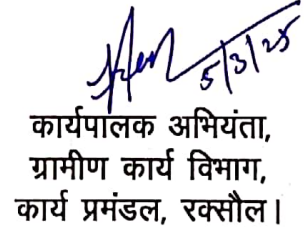 5/3/25
कार्यपालक अभियंता,
ग्रामीण कार्य विभाग,
कार्य प्रमंडल, रक्सौल।